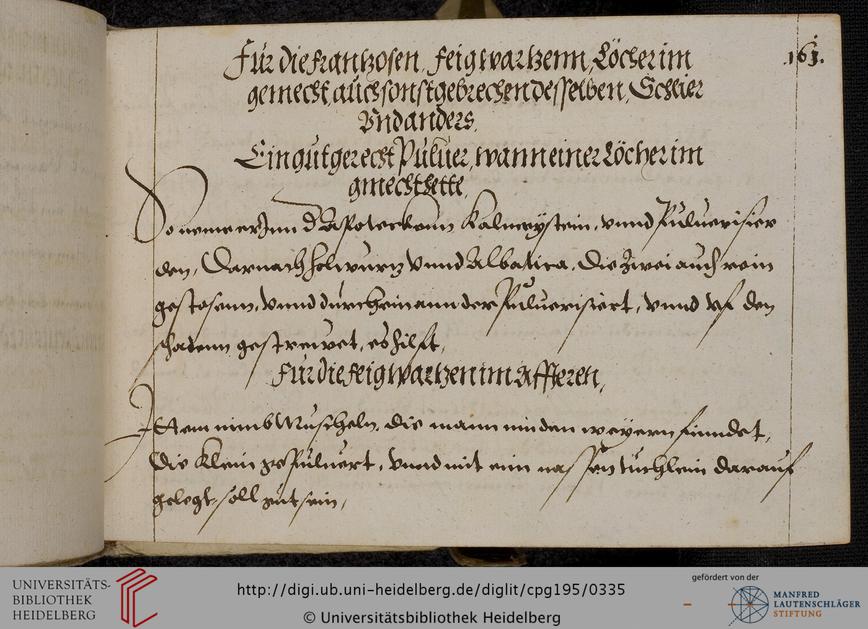 161.
Für die frantzosen, feigwartzenn, Löcher im
gemecht, auch sonst gebrechen desselben, Schlier
Vnd anders.
Ein gut gerecht Puluer, wann einer Löcher im
gmecht hette,
So neme er Inn d Apoteckenn Kalmeystein, vnnd Puluerisier
den, Darnach holwurtz vnnd Albatica, die zwei auch rein
gestosenn, vnnd durcheinannder Puluerisiert, vnnd vf den
schadenn gestrewet, es hilfft,
Für die feigwartzen im Affteren,
Item nimb Muscheln, die mann inn den weyern finndet,
die klein gepuluert, vnnd mit eim nassen tüchlein darauf
gelegt, soll gut sein,
UNIVERSITÄTS-
BIBLIOTHEK
HEIDELBERG
http://digi.ub.uni-heidelberg.de/diglit/cpg195/0335
© Universitätsbibliothek Heidelberg
gefördert von der
MANFRED
LAUTENSCHLÄGER
STIFTUNG